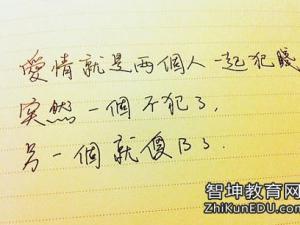 愛情就是两個人一起犯賤
突然一個不犯了,
另一個就傻B了.
智坤教育网
ZhiKunEDU.com